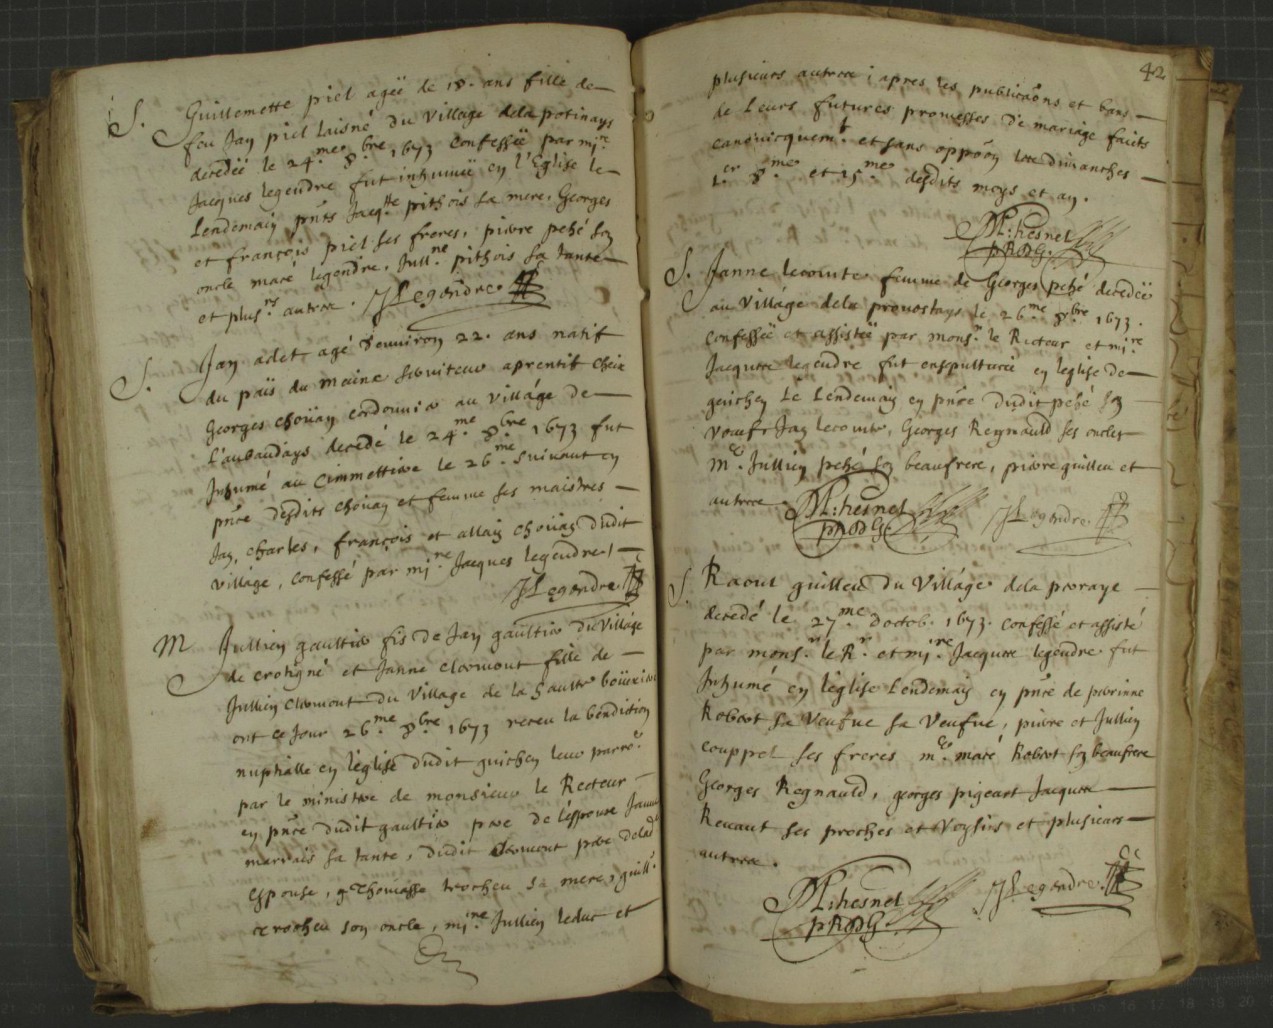 S. Guillemette piel agéë de 18. ans fille de
feu Jan piel laisné du village dela potinays
decedéë le 24.me 8.bre 1673 confesséë par mi.re
Jacques legendre fut inhuméë en l'Eglise le
Lendemain pnts Jacq.tte pithois sa mere, Georges
et françois piel ses freres, pierre pehé son
oncle macé legendre, Jull.ne pithois sa tante
et plus.rs autres. JLegendre
S. Jan adet agé denuiron 22. ans natif
du païs du maine seruiteur aprentif cheix
Georges choüan cordonnier au village de
L'aubaudays decedé le 24.me 8.bre 1673 fut
Inhumé au cimmettiere le 26.me suiuant en
pnce desdits choüan et femme ses maistres
Jan, charles, françois et allain choüan dudit
village, confessé par mi.re Jacques legendre
JLegendre
M Jullien gaultier fis de Jan gaultier du village
de crotigné et Janne clermont fille de
Jullien clermont du village de la haulte
ont ce jour 26.me 8.bre 1673 receu la bendiction
nuptialle en l'eglise dudit guichen leur parroe
par le ministere de monsieur le Recteur
en pnce dudit gaultier pere de l'espoux Janne
marvais sa tante, dudit clermont pere delad
espouse, g Thomasse trocheu sa mere, guill.
trocheu son oncle, mi.re Jullien leduc et
42
plusieurs autres; apres les publicaons et bans
de Leurs futures promesses de mariage faicts
canonicquem.t et sans oppoon les dimanches
1.er 8.me et 15.me desdits moys et an.
M: hesnel
pRddG.
S. Janne lecomte femme de Georges pehé decedéë
au village dela prouostays le 26.me 8.bre 1673.
confesséë et assistéë par mons.r le Recteur et mi.re
Jacques legendre fut ensepulturéë en leglise de
guichen le Lendemain en pnce dudit pehé son
veuf Jan lecomte, Georges Regnauld ses oncles
M.e Jullien pehé son beaufrere, pierre guilleu et
autres. M: hesnel JLegendre
pRddG.
S. Raoul guilleu du village dela poraye
decedé le 27.me doctob. 1673. confessé et assisté
par mons.r le R.r et mi.re Jacques legendre fut
Inhumé en l'eglise Lendemain en pnce de perrinne
Robert sa veufue sa veufue, pierre et Jullien
couppel ses freres m.e macé Robert son beaufrere
Georges Regnauld, georges pigeart Jacques
Reuaut ses proches et voysins et plusieurs
autres.
M: hesnel JLegendre
pRddG.